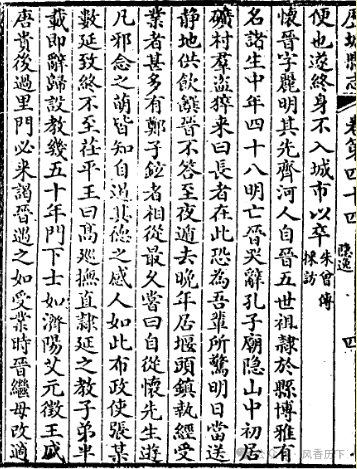 歷城縣志 卷第四十四 隱逸 四
便也遂終身不入城市以卒 朱曾傳採訪
懷晉字麗明其先齊河人自晉五世祖隸於縣博雅有
名諸生中年四十八明亡晉哭辭孔子廟隱山中初居
礦村羣盜猝來曰長者在此恐為吾輩所驚明日當送
静地供飲饌晉不答至夜遁去晚年居堰頭鎮執經受
業者甚多有鄭子鉝者相從最久嘗曰自從懷先生遊
凡邪念之萌皆知自遏其德之感人如此布政使張某
數延致終不至茌平王曰高巡撫直隷延之教子弟半
載即辭歸設教幾五十年門下士如濟陽艾元徵王戚
唐貴後過里門必来謁晉遇之如受業時晉繼母改適
风香历下